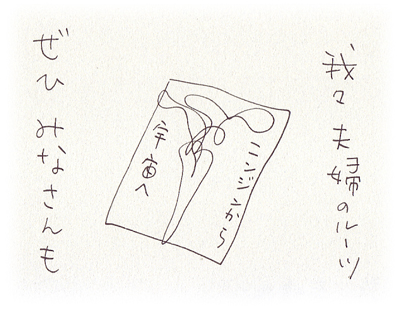 我々夫婦のルーツ
ニンジンから
宇宙へ
ぜひ みなさんも